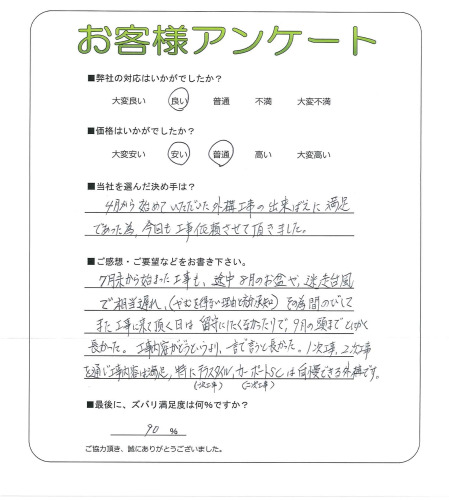 お客様アンケート
■弊社の対応はいかがでしたか？
大変良い 良い 普通 不満 大変不満
■価格はいかがでしたか？
大変安い 安い 普通 高い 大変高い
■当社を選んだ決め手は？
4月から始めていただいた外構工事の出来ばえに満足
であった為、今回も工事依頼させて頂きました。
■ご感想・ご要望などをお書き下さい。
7月末から始まった工事も、途中8月のお盆や、迷走台風
で相当遅れ、(やむを得ない理由と 承知)その為間のびして
また工事に来て頂く日は留守にしたくなかったりで、9月の頭までとにかく
長かった。工事内容がどうというより、一言で言うと長かった。1次工事、2次工事
を通じ工事内容は満足、特にテラスタイル、カーポートSCは自慢できる外構です。
(一次工事) (二次工事)
■最後に、ズバリ満足度は何％ですか？
90 ％
ご協力頂き、誠にありがとうございました。